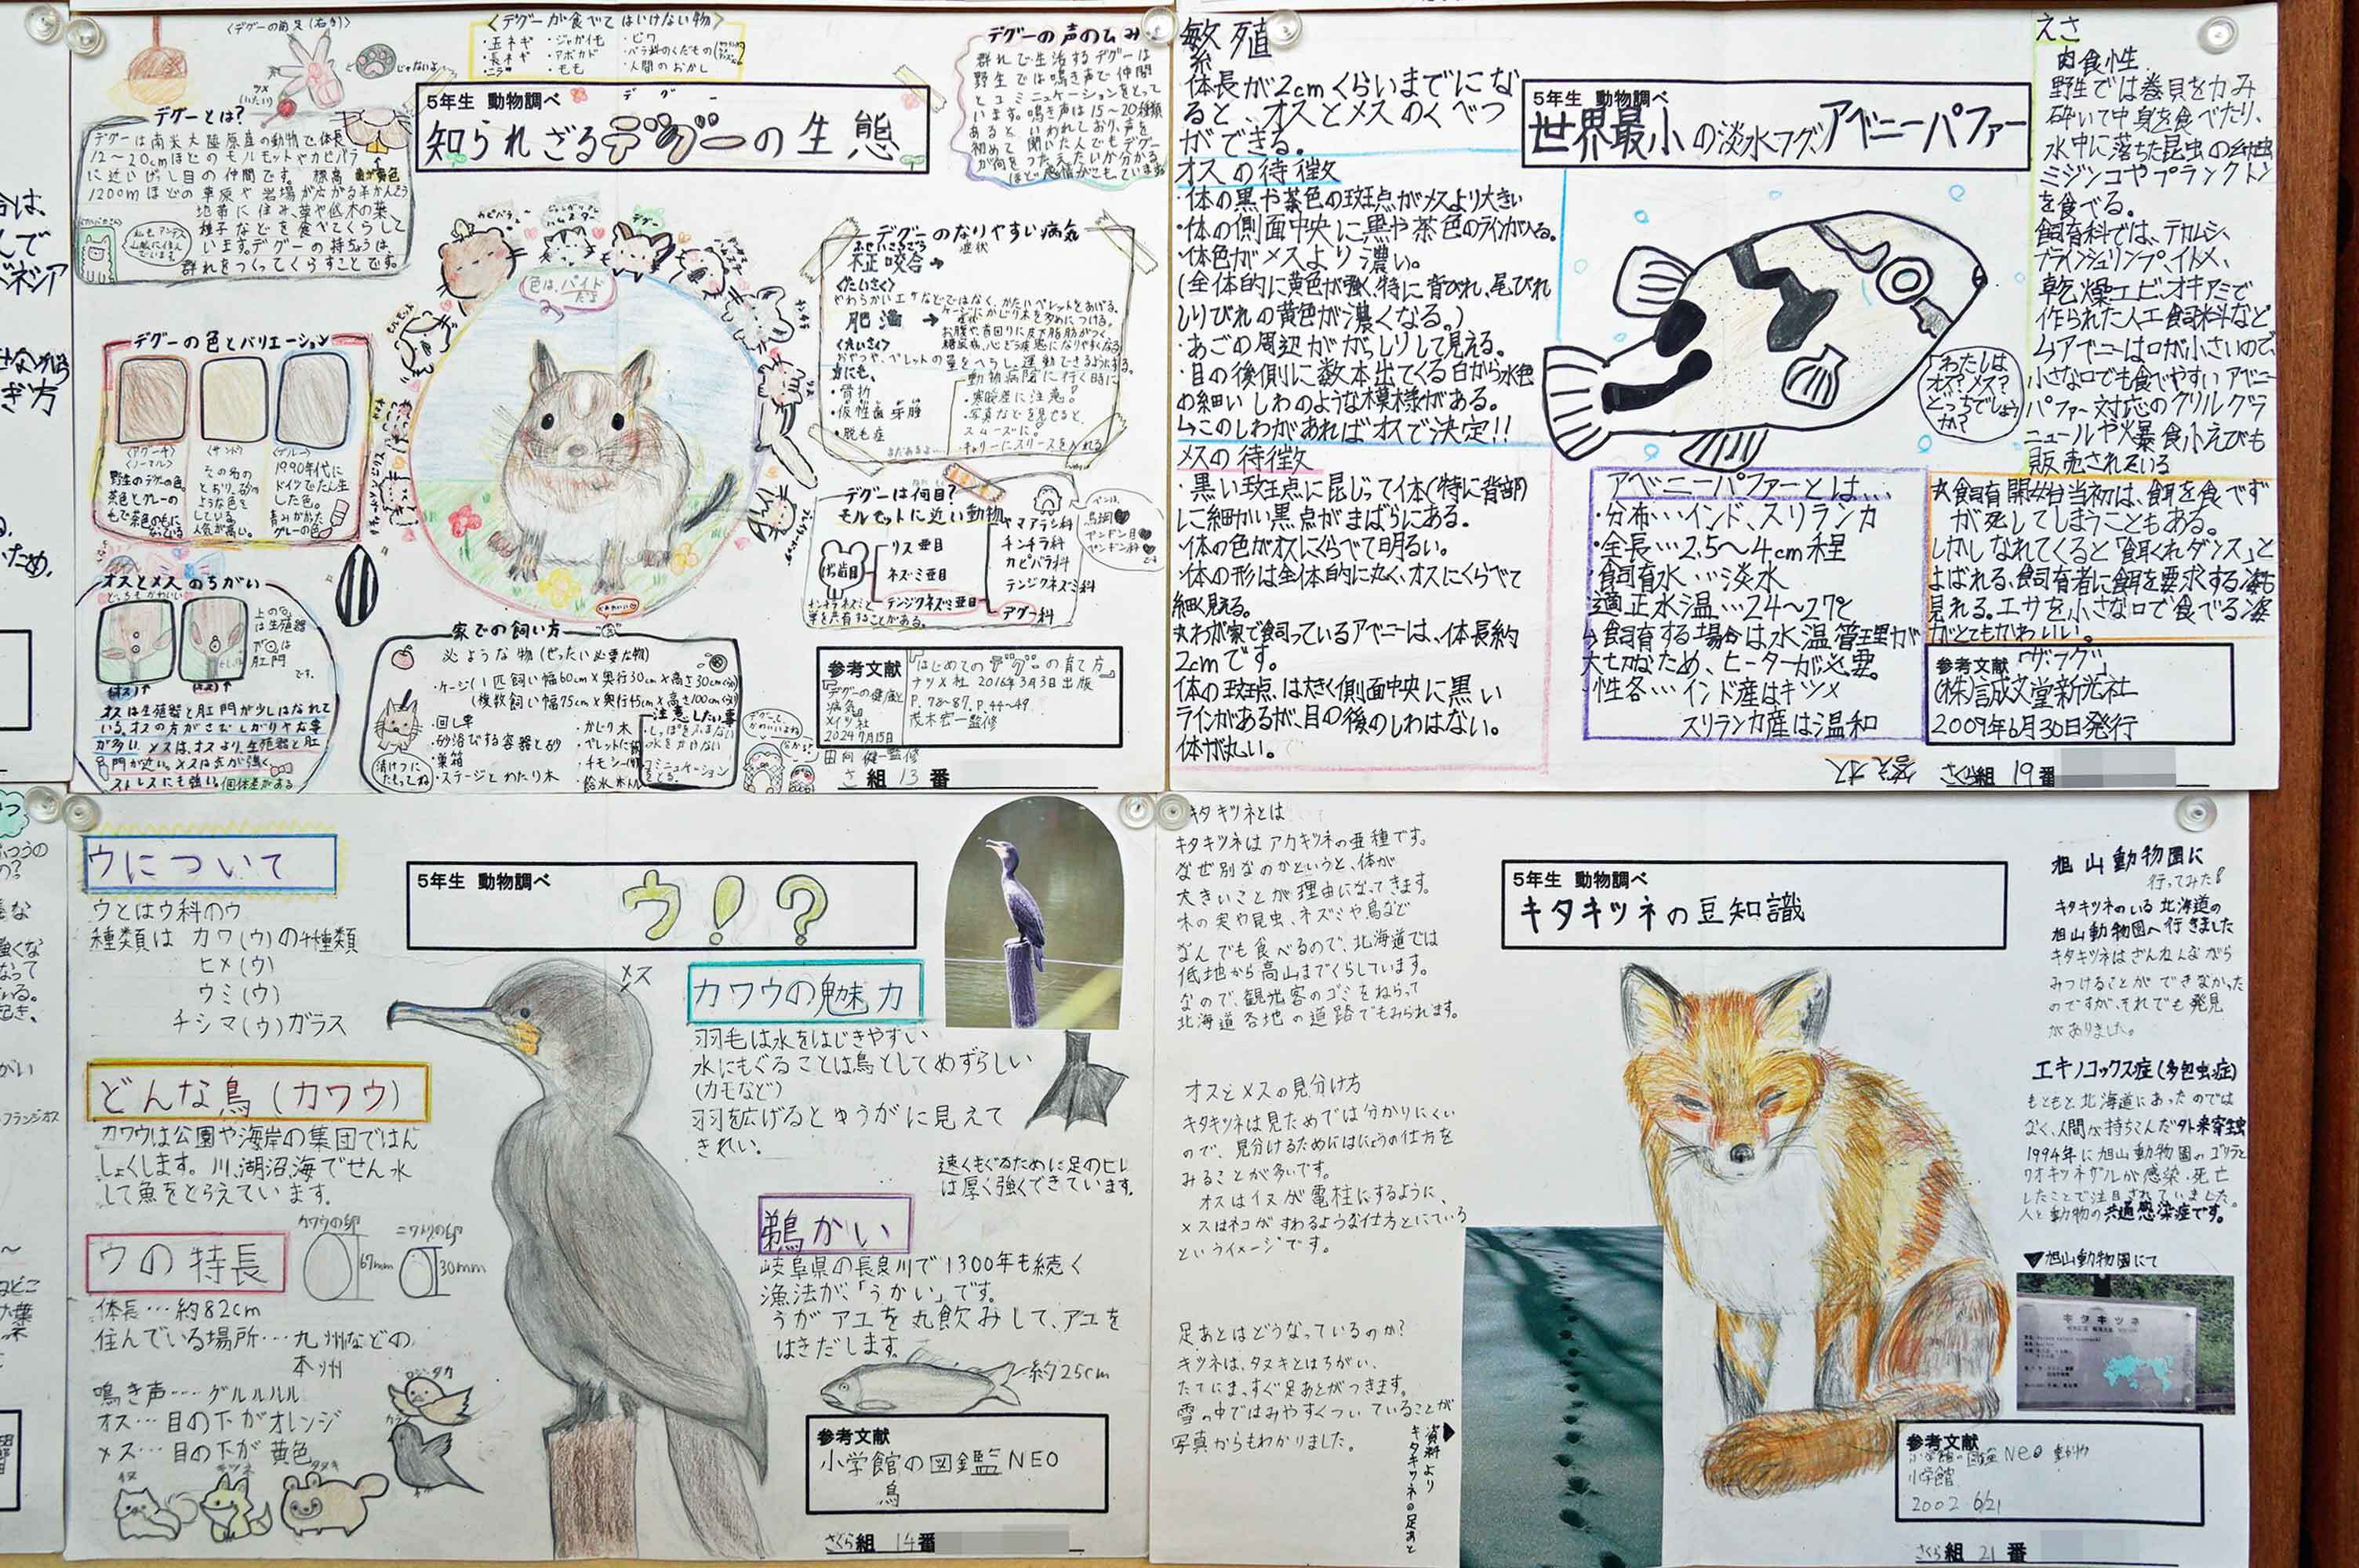 〈デグーの前足(右手)〉
じゃないよ
ツメ
(いたい)
〈デグーが食べてはいけない物〉
・玉ネギ ・ジャガイモ ・ビワ
・長ネギ ・アボカド ・バラ科のくだもの
・ニラ ・もも ・人間のおかし
5年生 動物調べ
知られざるデグーの生態
デグーとは?
デグーは南米大陸原産の動物で、体長
12～20cmほどのモルモットやカピバラ
に近いげっし目の仲間です。標高
1200mほどの草原や岩場が広がる半かんそう
地帯に住み、葉や低木の葉、
種子などを食べてくらして
います。デグーの特ちょうは、
群れをつくってくらすことです。
歯が黄色
デグーの声のひみつ
群れで生活するデグーは
野生では鳴き声で仲間
とコミュニュケーションをとって
います。鳴き声は15～20種類
あるといわれており、声を
初めて聞いた人でもデグー
が何をつたえたいか分かる
ほど感情がこもっています
デグーの色とバリエーション
〈アグーチ〉
〈ノーマル〉
野生のデグーの色。
茶色とグレーの
毛で茶色のもに
なっている
〈サンド〉
その名の
とおり、砂の
ような色を
している。
人気が高い。
〈ブルー〉
1990年代に
ドイツでたん生
した色。
青みがかった
グレーの色
色は、パイド
だよ
デグーのなりやすい病気
不正咬合→
症状
〈たいさく〉
やわらかいエサなどではなく、かたいペレットをあげる。
ケージにかじり木を多めにつける。
肥満→
お腹や首回りに皮下脂肪がつく。
糖尿病、心ぞう疾患になりやすくなる
〈たいさく〉
おやつや、ペレットの量をへらし、運動できるようにする。
他にも、
・骨折
・仮性歯牙腫
・脱毛症
動物病院に行く時に
・寒暖差に注意。
・写真などを見せると、
スムーズに!
・キャリーにフリースを入れる
デグーは何目?
モルモットに近い動物
げっ歯目
リス亜目
ネズミ亜目
テンジクネズミ亜目
ヤマアラシ科
チンチラ科
カピバラ科
テンジクネズミ科
デグー科
ペンは、
鳥綱
ペンギン目
ペンギン科
だよ
オスとメスのちがい
どっちもかわいい
上の○
は生殖器
が◎は
肛門
です。
(オス)↑ (メス)↑
オスは生殖器と肛門が少しはなれて
いる。オスの方がさびしがりやな事
が多い。メスは、オスより、生殖器と肛
門が近い。メスは気が強く。
ストレスにも強い。個体差がある
家での飼い方
必ような物(ぜったい必要な物)
・ケージ(1匹飼い幅60cm×奥行30cm×高さ30cm(～))
(複数飼い幅75cm×奥行45cm×高さ100cm(～))
・回し車
・砂浴びする容器と砂
・巣箱
・ステージとわたり木
・かじり木
・ペレットに
・チモシー
・給水ボトル
注意したい事
・しっぽをふまない
・水をかけない
・コミニュケーション
をとる。
清けつに
たもってね
参考文献
『はじめてのデグーの育て方』
ナツメ社 2016年3月3日出版
P.78～87、P.44～49
茂木宏一監修
『デグーの健康と
病気』
メイツ社
2024 7月15日
田向健一監修
さ 組 13 番
繁殖
体長が2cmくらいまでにな
ると、オスとメスのくべつ
ができる。
オスの待徴
・体の黒や茶色の斑点がメスより大きい
・体の側面中央に黒や茶色のラインが入る。
・体色がメスより濃い。
(全体的に黄色が強く、特に背びれ、尾びれ
しりびれの黄色が濃くなる。)
・あごの周辺ががっしりして見える。
・目の後側に数本出てくる白から水色
の細いしわのような模様がある。
↳このしわがあればオスで決定!!
メスの待徴
・黒い斑点に混じって体(特に背部)
に細かい黒点がまばらにある。
・体の色がオスにくらべて明るい。
・体の形は全体的に丸く、オスにくらべて
細く見える。
☆わが家で飼っているアベニーは、体長約
2cmです。
体の斑点は大きく側面中央に黒い
ラインがあるが、目の後のしわはない。
体が丸い。
5年生 動物調べ
世界最小の淡水フグ、アベニーパファー
わたしは
オス?メス?
どっちでしょう
か?
えさ
肉食性
野生では巻貝をかみ
砕いて中身を食べたり、
水中に落ちた昆虫の幼虫
ミジンコやプランクトン
を食べる。
飼育科では、テカムシ、
ブラインシュリンプ、イトメ、
乾燥エビ、オキアミで
作られた人工飼料など
↳アベニーは口が小さいので、
小さな口でも食べやすいアベニー
パファー対応のクリルグラ
ニュールや火暴食小えびも
販売されている
アベニーパファーとは…
・分布…インド、スリランカ
・全長…2.5～4cm程
・飼育水…淡水
・適正水温…24～27℃
↳飼育する場合は水温管理が
大切なため、ヒーターが必要。
・性各…インド産はキツメ
スリランカ産は温和
☆飼育開始当初は、餌を食べず
が死してしまうこともある。
しかしなれてくると「餌くれダンス」と
よばれる、飼育者に餌を要求する姿も
見れる。エサを小さな口で食べる姿
がとてもかわいい。
参考文献 「ザ・フグ」
(株)誠文堂新光社
2009年6月30日発行
答え オス
さくら組 19番
ウについて
ウとはウ科のウ
種類は カワ(ウ)の4種類
ヒメ(ウ)
ウミ(ウ)
チシマ(ウ)ガラス
どんな鳥(カワウ)
カワウは公園や海岸の集団ではん
しょくします。川、湖沼、海でせん水
して魚をとらえています。
ウの特長
カワウの卵
67mm
ニワトリの卵
30mm
体長…約82cm
住んでいる場所…九州などの
本州
鳴き声…グルルルル
オス…目の下がオレンジ
メス…目の下が黄色
イヌ
キツネ
タヌキ
5年生 動物調べ
ウ!?
メス
カワウの魅力
羽毛は水をはじきやすい
水にもぐることは鳥としてめずらしい
(カモなど)
羽を広げるとゆうがに見えて
きれい。
速くもぐるために足のヒレ
は厚く強くできています。
鵜かい
岐阜県の長良川で1300年も続く
漁法が、「うかい」です。
うがアユを丸飲みして、アユを
はきだします。
約25cm
参考文献
小学館の図鑑NEO
鳥
さくら組 14番
キタキツネとは
キタキツネはアカギツネの亜種です。
なぜ別なのかというと、体が
大きいことが理由になってきます。
木の実や昆虫、ネズミや鳥など
なんでも食べるので、北海道では
低地から高山までくらしています。
なので、観光客のゴミをねらって
北海道各地の道路でもみられます。
オスとメスの見分け方
キタキツネは見ためでは分かりにくい
ので、見分けるためにはにょうの仕方を
みることが多いです。
オスはイヌが電柱にするように、
メスはネコがすわるような仕方とにている
というイメージです。
足あとはどうなっているのか?
キツネは、タヌキとはちがい、
たてにまっすぐ足あとがつきます。
雪の中ではみやすくついていることが
写真からもわかりました。
資料より
キタキツネの足あと
5年生 動物調べ
キタキツネの豆知識
旭山動物園に
行ってみた!
キタキツネのいる北海道の
旭山動物園へ行きました
キタキツネはざんねんながら
みつけることができなかった
のですが、それでも発見
がありました。
エキノコックス症(多包虫症)
もともと北海道にあったのでは
なく、人間が持ちこんだ外来寄生虫
1994年に旭山動物園のゴリラと
ワオキツネザルが感染・死亡
したことで注目されていました。
人と動物の共通感染症です。
▼旭山動物園にて
キタキツネ
参考文献
小学館の図鑑NEO 動物
小学館
2002 6/21
さくら組 21 番